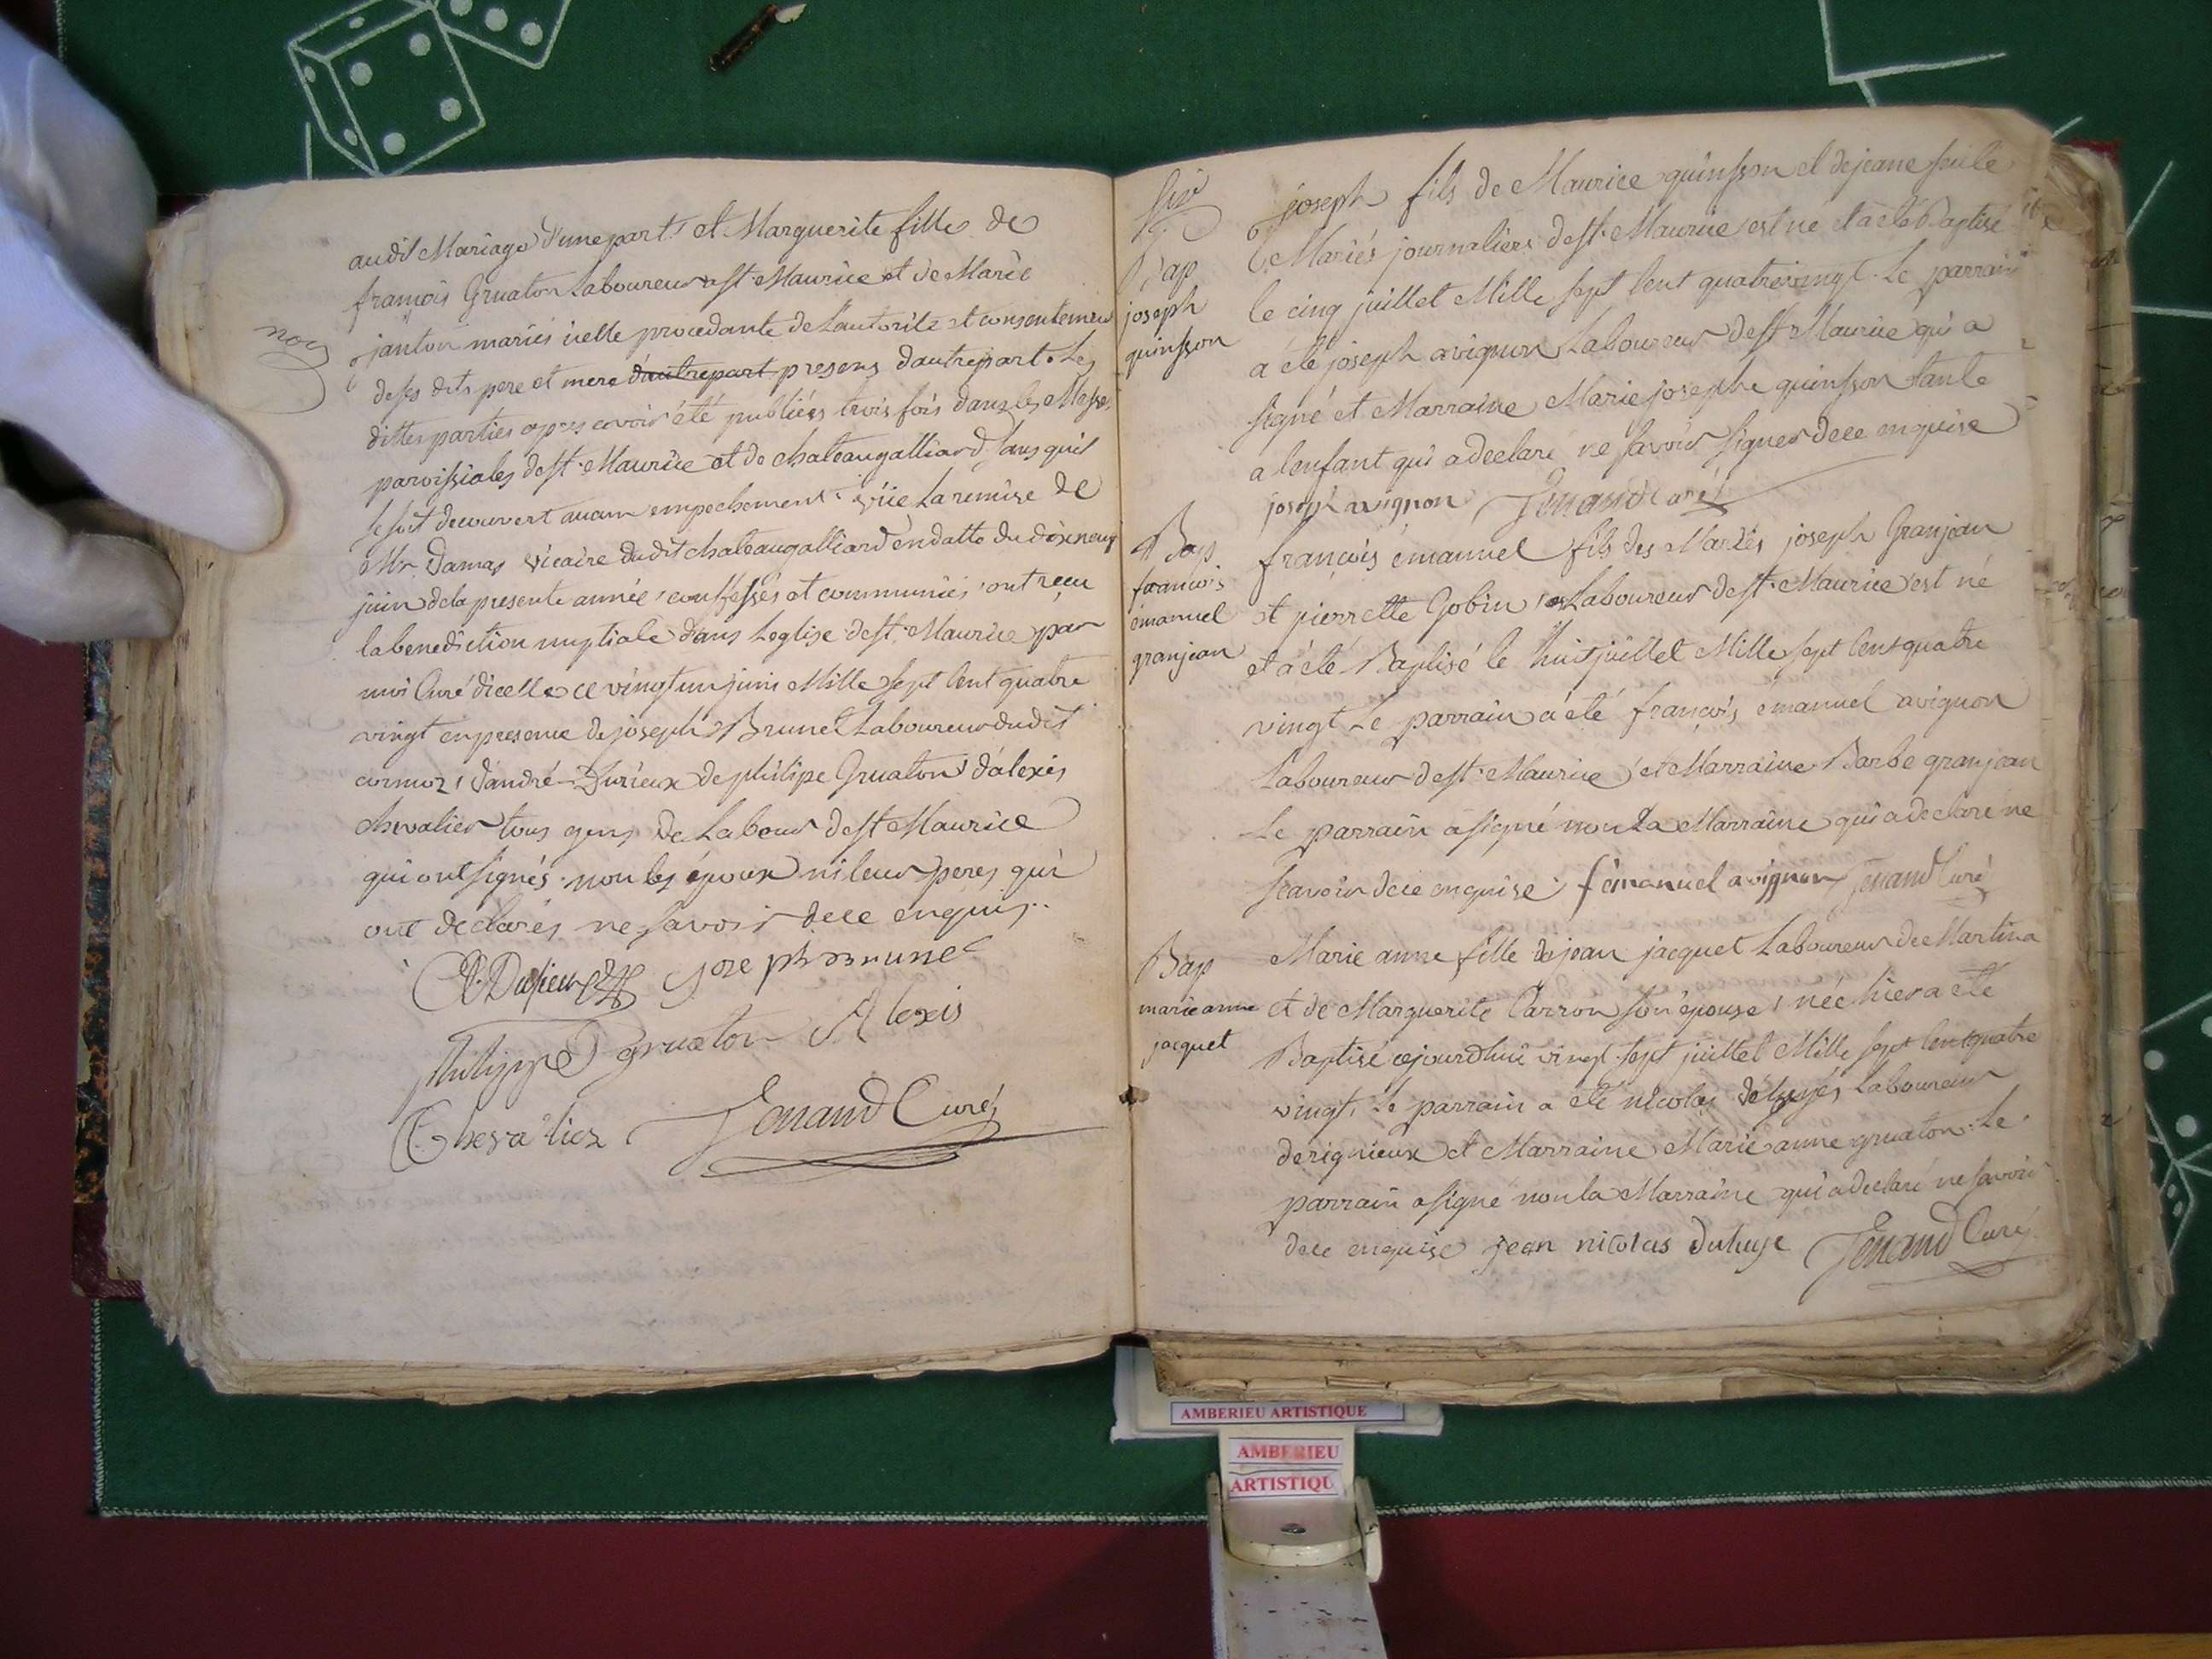 nocg
audit Mariage d'une part et Marguerite fille de
françois Gruaton Laboureur a st Maurice et de Marie
janton mariés icelle procedante de Lautorité et consentement
de ses dits pere et mere d'autre part presens d'autre part. Les
dittes parties apres avoir été publiées trois fois dans les Messes
paroissiales de st. Maurice et de chateaugalliard, sans qu'il
se soit decouvert aucun empechement vüe La remise de
Mr Damas vicaire dudit chateaugalliard en datte du dixneuf
juin de la presente année, confessés et communiés ont reçu
la benediction nuptiale dans Leglise de st. Maurice par
moi Curé dicelle ce vingt un juin Mille sept Cent quatre
vingt en presence de joseph Brunet Laboureur dudit
cormoz, d'andré Durieux de philipe Gruaton d'alexis
chevalier tous gens de Labour de st Maurice
qui ont signés. non les époux ni leurs peres qui
ont declarés ne savoir de ce enquis..
joseph Brunet
philippe gruaton Alexis
Chevalier Jenand Curé
Bap
joseph
quinsson
joseph fils de Maurice quinsson et de jeane
Mariés journaliers de st. Maurice est né et a été Baptisé
le cinq juillet Mille sept Cent quatrevingt. Le parrain
a été joseph avignon Laboureur de st Maurice qui a
signé et Marraine Marie josephe quinsson tante
a lenfant qui a declaré ne savoir signer de ce enquise
joseph avignon Jenand Curé
Bap
francois
émanuel
granjean
françois émanuel fils des Mariés joseph Granjean
et pierrette Gobin Laboureur de st. Maurice est né
et a été Baptisé le huit juillet Mille sept Cent quatre
vingt Le parrain a été françois émanuel avignon
Laboureur de st. Maurice et Marraine Barbe granjean
Le parrain a signé non La Marraine qui a declaré ne
scavoir de ce enquise. f émanuel avignon Jenand Curé
Bap
marie anne
jacquet
Marie anne fille de jean jacquet Laboureur de Martina
et de Marguerite Carron son épouse, née hier a été
Baptisé cejourdhui vingt sept juillet Mille sept Cent quatre
vingt, Le parrain a été nicolas Laboureur
de rignieux et Marraine Marie anne gruaton. Le
parrain a signé non la Marraine qui a declaré ne savoir
de ce enquise jean nicolas duhuye Jenand Curé
AMBERIEU ARTISTIQUE
AMBERIEU
ARTISTIQU